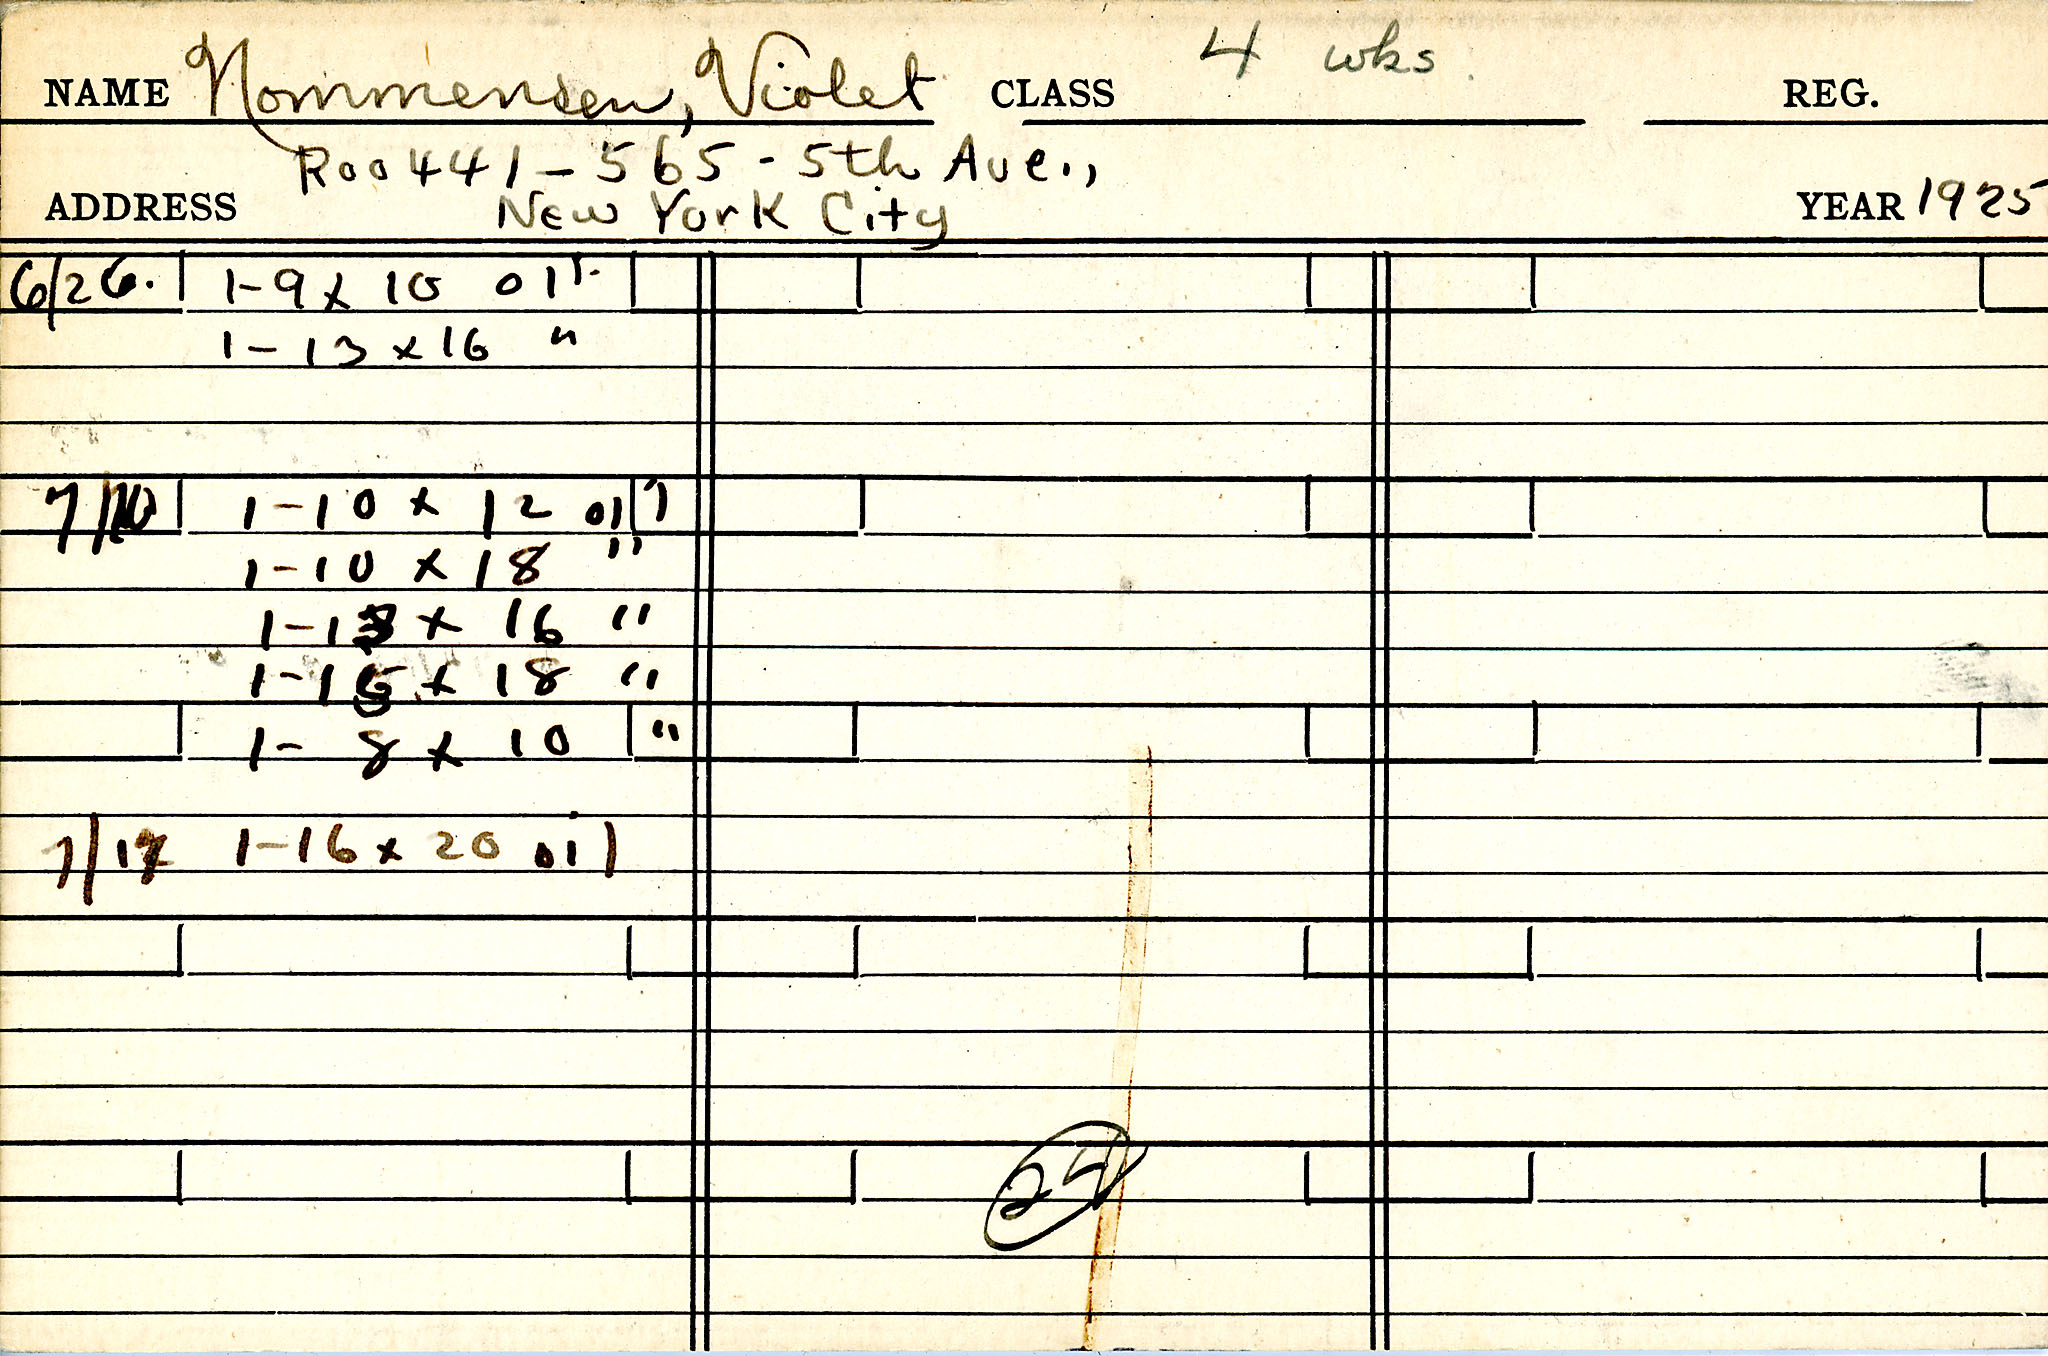 NAME Nommensen, Violet CLASS 4 wks. REG.
Roo 441 - 565 - 5th Ave.,
ADDRESS New York City YEAR 1925
6/26. 1-9 x 10 oil
1-13 x 16 "
7/10 1-10 x 12 oil
1-10 x 18 "
1-13 x 16 "
1-15 x 18 "
1- 8 x 10 "
7/17 1-16 x 20 oil